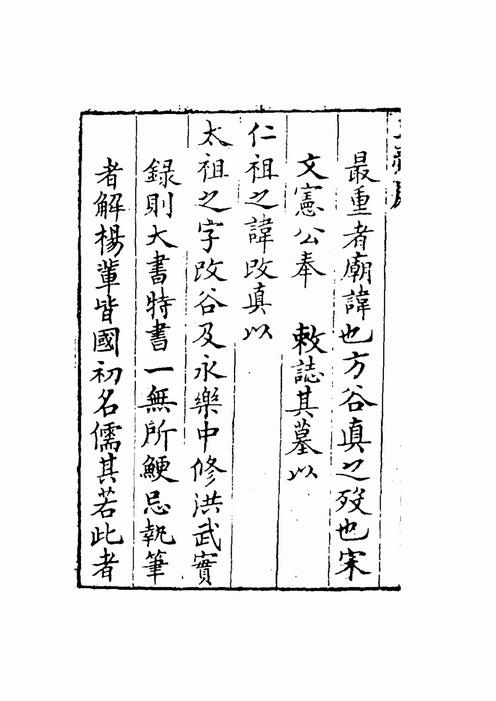 最重者廟諱也方谷真之歿也宋
文憲公奉　敕誌其墓以
仁祖之諱改真以
太祖之字改谷及永樂中修洪武實
録則大書特書一無所鯁忌執筆
者解楊輩皆國初名儒其若此者